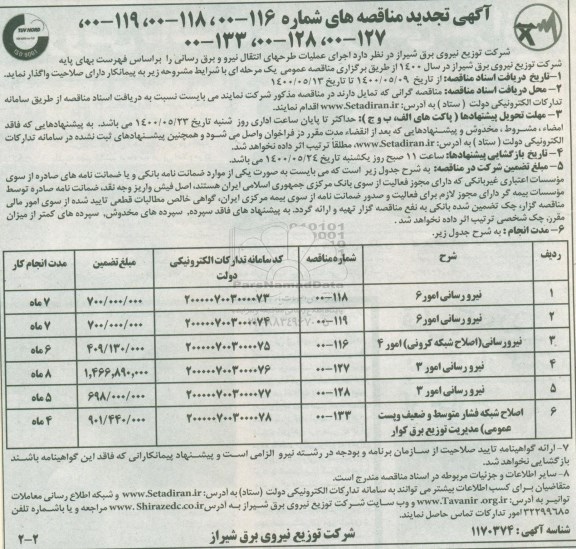 آگهی تجدید مناقصه های شماره ۱۱۶-۰۰، ۱۱۸-۰۰، ۱۱۹-۰۰،
۱۲۷-۰۰، ۱۲۸-۰۰، ۱۳۳-۰۰
شرکت توزیع نیروی برق شیراز در نظر دارد اجرای عملیات طرحهای انتقال نیرو و برق رسانی را براساس فهرست بهای پایه
شرکت توزیع نیروی برق شیراز در سال ۱۴۰۰ از طریق برگزاری مناقصه عمومی یک مرحله ای با شرایط مشروحه زیر به پیمانکار دارای صلاحیت واگذار نماید.
۱- تاریخ دریافت اسناد مناقصه: از تاریخ ۱۴۰۰/۰۵/۰۹ تا تاریخ ۱۴۰۰/۰۵/۱۳
۲- محل دریافت اسناد مناقصه: مناقصه گرانی که تمایل دارند در مناقصه مذکور شرکت نمایند می بایست نسبت به دریافت اسناد مناقصه از طریق سامانه
تدارکات الکترونیکی دولت (ستاد) به آدرس: www.Setadiran.ir اقدام نمایند.
۳- مهلت تحویل پیشنهادها (پاکت های الف، ب و ج): حداکثر تا پایان ساعت اداری روز شنبه تاریخ ۱۴۰۰/۰۵/۲۳ می باشد. به پیشنهادهایی که فاقد
امضاء، مشروط، مخدوش و پیشنهادهایی که بعد از انقضاء مدت مقرر در فراخوان واصل می شود و همچنین پیشنهادهای ثبت نشده در سامانه تدارکات
الکترونیکی دولت (ستاد) به آدرس: www.Setadiran.ir، مطلقا ترتیب اثر داده نخواهد شد.
۴- تاریخ بازگشایی پیشنهادها: ساعت ۱۱ صبح روز یکشنبه تاریخ ۱۴۰۰/۰۵/۲۴ می باشد.
۵- مبلغ تضمین شرکت در مناقصه: به شرح جدول زیر است که می بایست به صورت یکی از موارد ضمانت نامه بانکی و یا ضمانت نامه های صادره از سوی
مؤسسات اعتباری غیربانکی که دارای مجوز فعالیت از سوی بانک مرکزی جمهوری اسلامی ایران هستند، اصل فیش واریز وجه نقد، ضمانت نامه صادره توسط
مؤسسات بیمه گر دارای مجوز لازم برای فعالیت و صدور ضمانت نامه از سوی بیمه مرکزی ایران، گواهی خالص مطالبات قطعی تایید شده از سوی امور مالی
مناقصه گزار، چک تضمین شده بانکی به نفع مناقصه گزار تهیه و ارائه گردد. به پیشنهاد های فاقد سپرده، سپرده های مخدوش، سپرده های کمتر از میزان
مقرر، چک شخصی ترتیب اثر داده نخواهد شد.
۶- مدت انجام: به شرح جدول زیر.
ردیف شرح شماره مناقصه کد سامانه تدارکات الکترونیکی دولت مبلغ تضمین مدت انجام کار
۱ نیرو رسانی امور ۶ ۱۱۸-۰۰ ۲۰۰۰۰۰۷۰۰۳۰۰۰۰۷۳ ۷۰۰/۰۰۰/۰۰۰ ۷ ماه
۲ نیرو رسانی امور ۶ ۱۱۹-۰۰ ۲۰۰۰۰۰۷۰۰۳۰۰۰۰۷۴ ۷۰۰/۰۰۰/۰۰۰ ۷ ماه
۳ نیرورسانی (اصلاح شبکه کرونی) امور ۴ ۱۱۶-۰۰ ۲۰۰۰۰۰۷۰۰۳۰۰۰۰۷۵ ۴۰۹/۱۳۰/۰۰۰ ۶ ماه
۴ نیرو رسانی امور ۳ ۱۲۷-۰۰ ۲۰۰۰۰۰۷۰۰۳۰۰۰۰۷۶ ۱,۴۶۶,۸۹۰,۰۰۰ ۸ ماه
۵ نیرو رسانی امور ۳ ۱۲۸-۰۰ ۲۰۰۰۰۰۷۰۰۳۰۰۰۰۷۷ ۶۹۸/۰۰۰/۰۰۰ ۵ ماه
۶ اصلاح شبکه فشار متوسط و ضعیف وپست عمومی) مدیریت توزیع برق کوار ۱۳۳-۰۰ ۲۰۰۰۰۰۷۰۰۳۰۰۰۰۷۸ ۹۰۱/۴۴۰/۰۰۰ ۴ ماه
۷- ارائه گواهینامه تایید صلاحیت از سازمان برنامه و بودجه در رشته نیرو الزامی است و پیشنهاد پیمانکارانی که فاقد این گواهینامه باشند
بازگشایی نخواهد شد.
۸- سایر اطلاعات و جزئیات مربوطه در اسناد مناقصه مندرج است.
متقاضیان برای کسب اطلاعات بیشتر می توانند به سامانه تدارکات الکترونیکی دولت (ستاد) به آدرس: www.Setadiran.ir و شبکه اطلاع رسانی معاملات
توانیر به آدرس: www.Tavanir.org.ir و وب سایت شرکت توزیع نیروی برق شیراز به آدرس www.Shirazedc.co.ir مراجعه و یا باشماره تلفن
۳۲۲۹۹۶۸۵ امور تدارکات تماس حاصل نمایند.
شناسه آگهی: ۱۱۷۰۳۷۴
شرکت توزیع نیروی برق شیراز
۲-۲